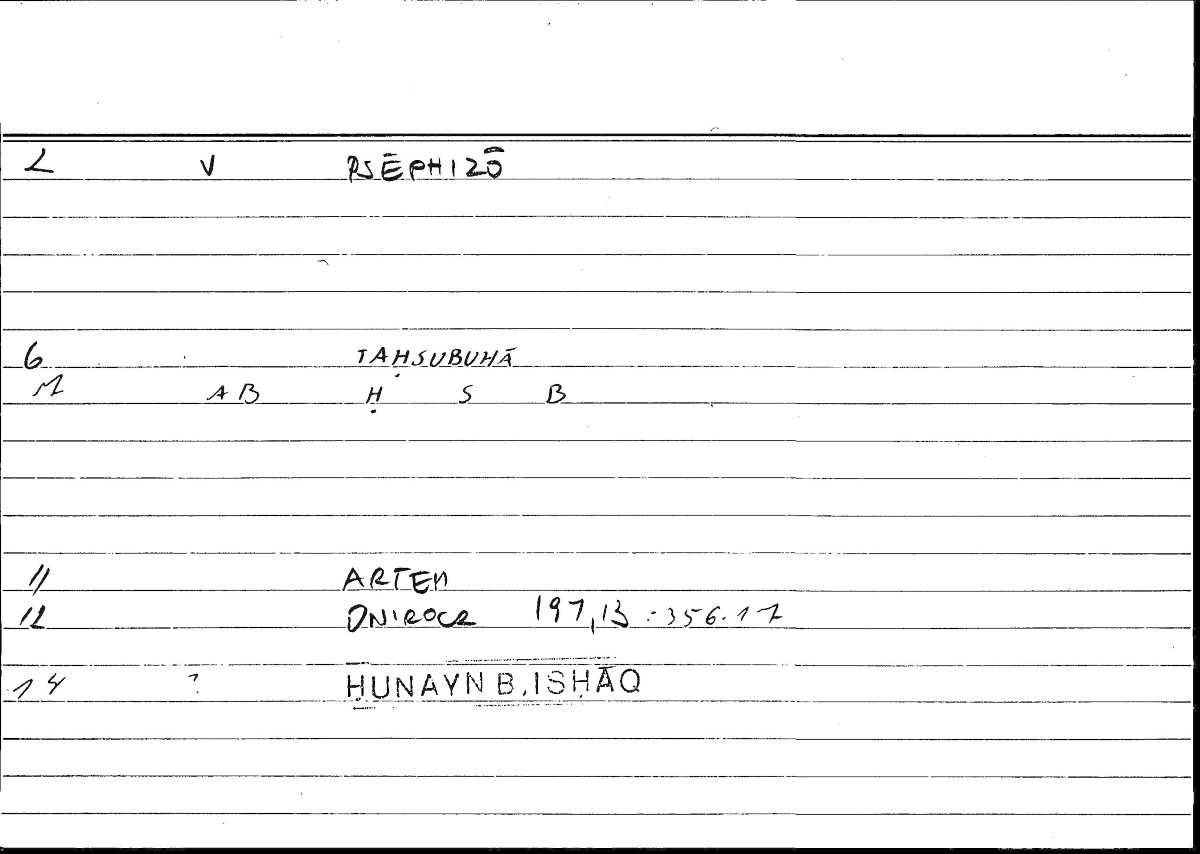 2 V PSĒPHIZŌ
6 TAḤSUBUHĀ
M AB Ḥ S B
11 ARTEM
12 ONIROCR 197,13 : 356.17
14 ? ḤUNAYN B. ISḤĀQ